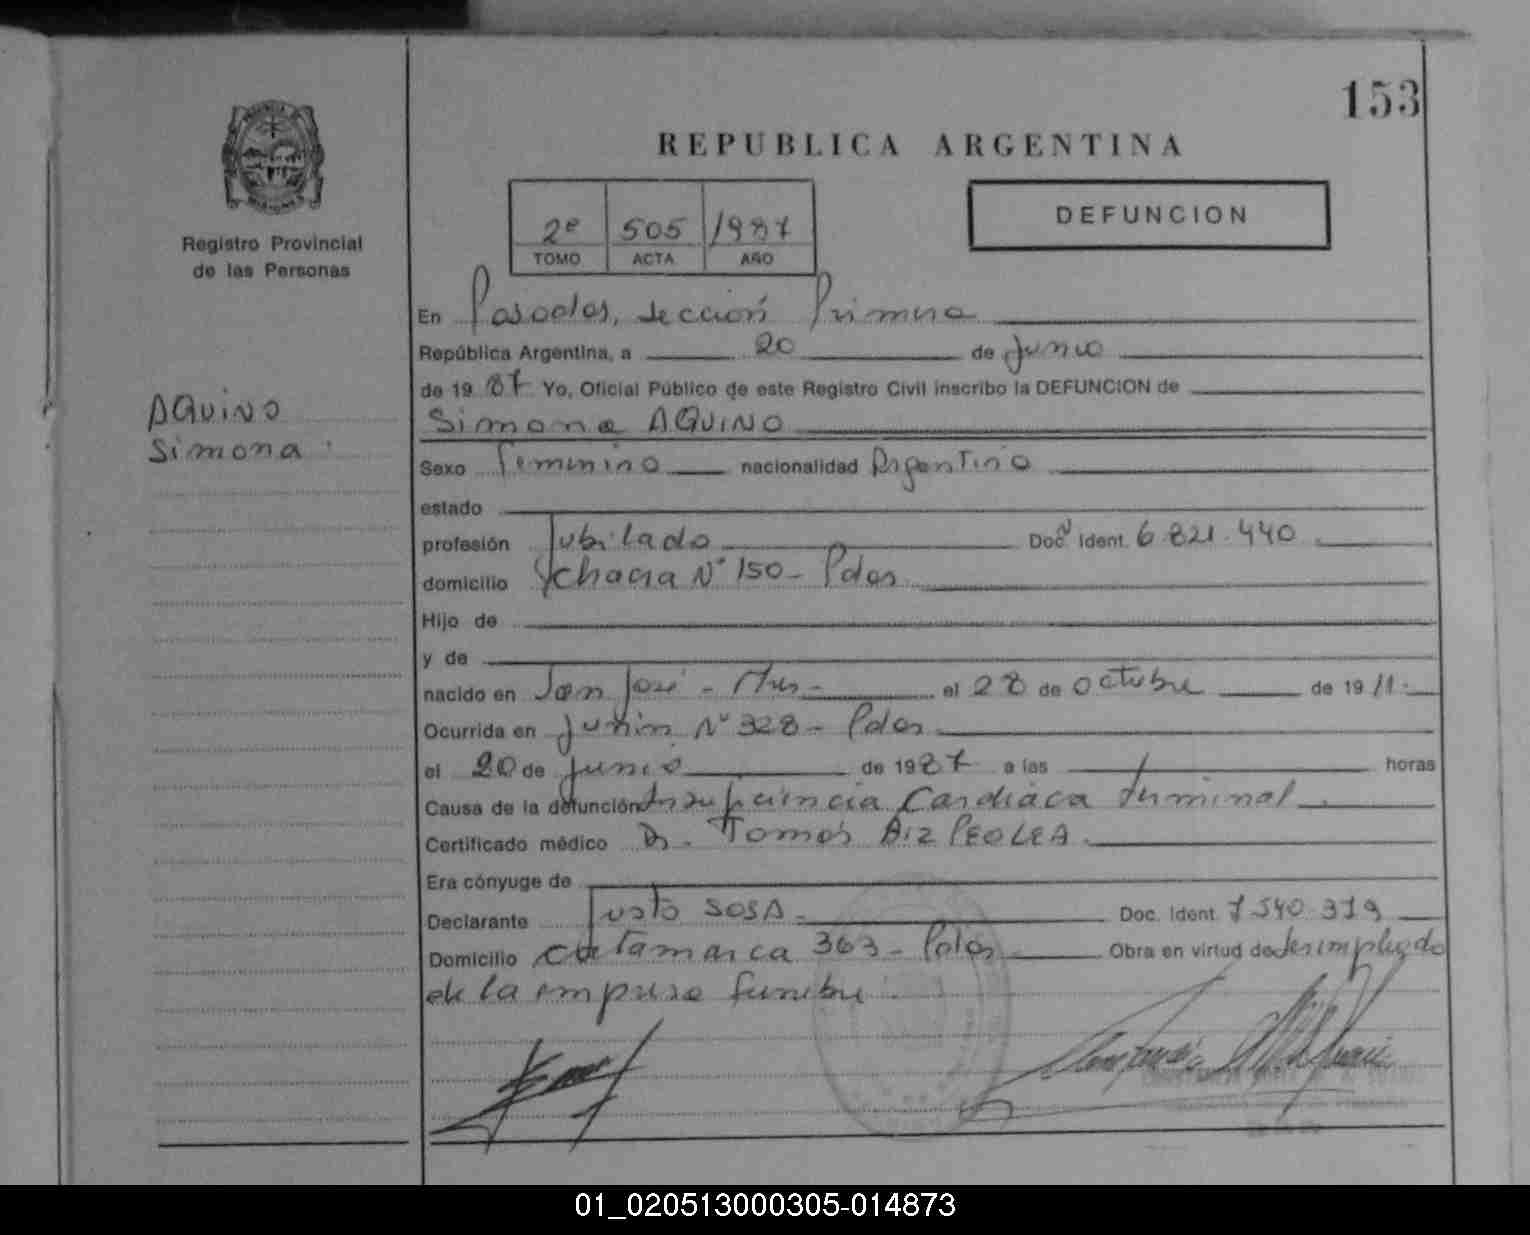 153
REPUBLICA ARGENTINA
2º 505 1987
TOMO ACTA AÑO
DEFUNCION
Registro Provincial
de las Personas
AQUINO
Simona
En Posadas, Sección Primera
República Argentina, a 20 de Junio
de 1987 Yo, Oficial Público de este Registro Civil inscribo la DEFUNCION de
Simona AQUINO
Sexo Femenino nacionalidad Argentino
estado
profesión Jubilado Doc. Ident. 6.821.440
domicilio chacra Nº 150 - Pdas
Hijo de
y de
nacido en San José - Mnes - el 28 de octubre de 1911.
Ocurrida en Junín Nº 328 - Pdas
el 20 de junio de 1987 a las horas
Causa de la defunción Insuficiencia Cardiaca terminal.
Certificado médico Dr. Tomás
Era cónyuge de
Declarante Justo SOSA - Doc. Ident. 7.540.379
Domicilio catamarca 363 - Pdas Obra en virtud de
de la empresa funebre.
01_020513000305-014873